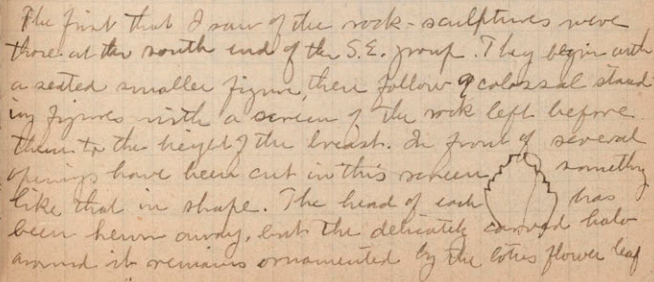 The first that I saw of the rock-sculptures were
those at the south end of the S.E. group. They begin with
a seated smaller figure, then follow 9 colossal stand-
ing figures with a screen of the rock left before
them to the height of the breast. In front of several
openings have been cut in this screen something
like that in shape. The head of each has
been hewn away, but the delicately carved halo
around it remains ornamented by the lotus flower leaf